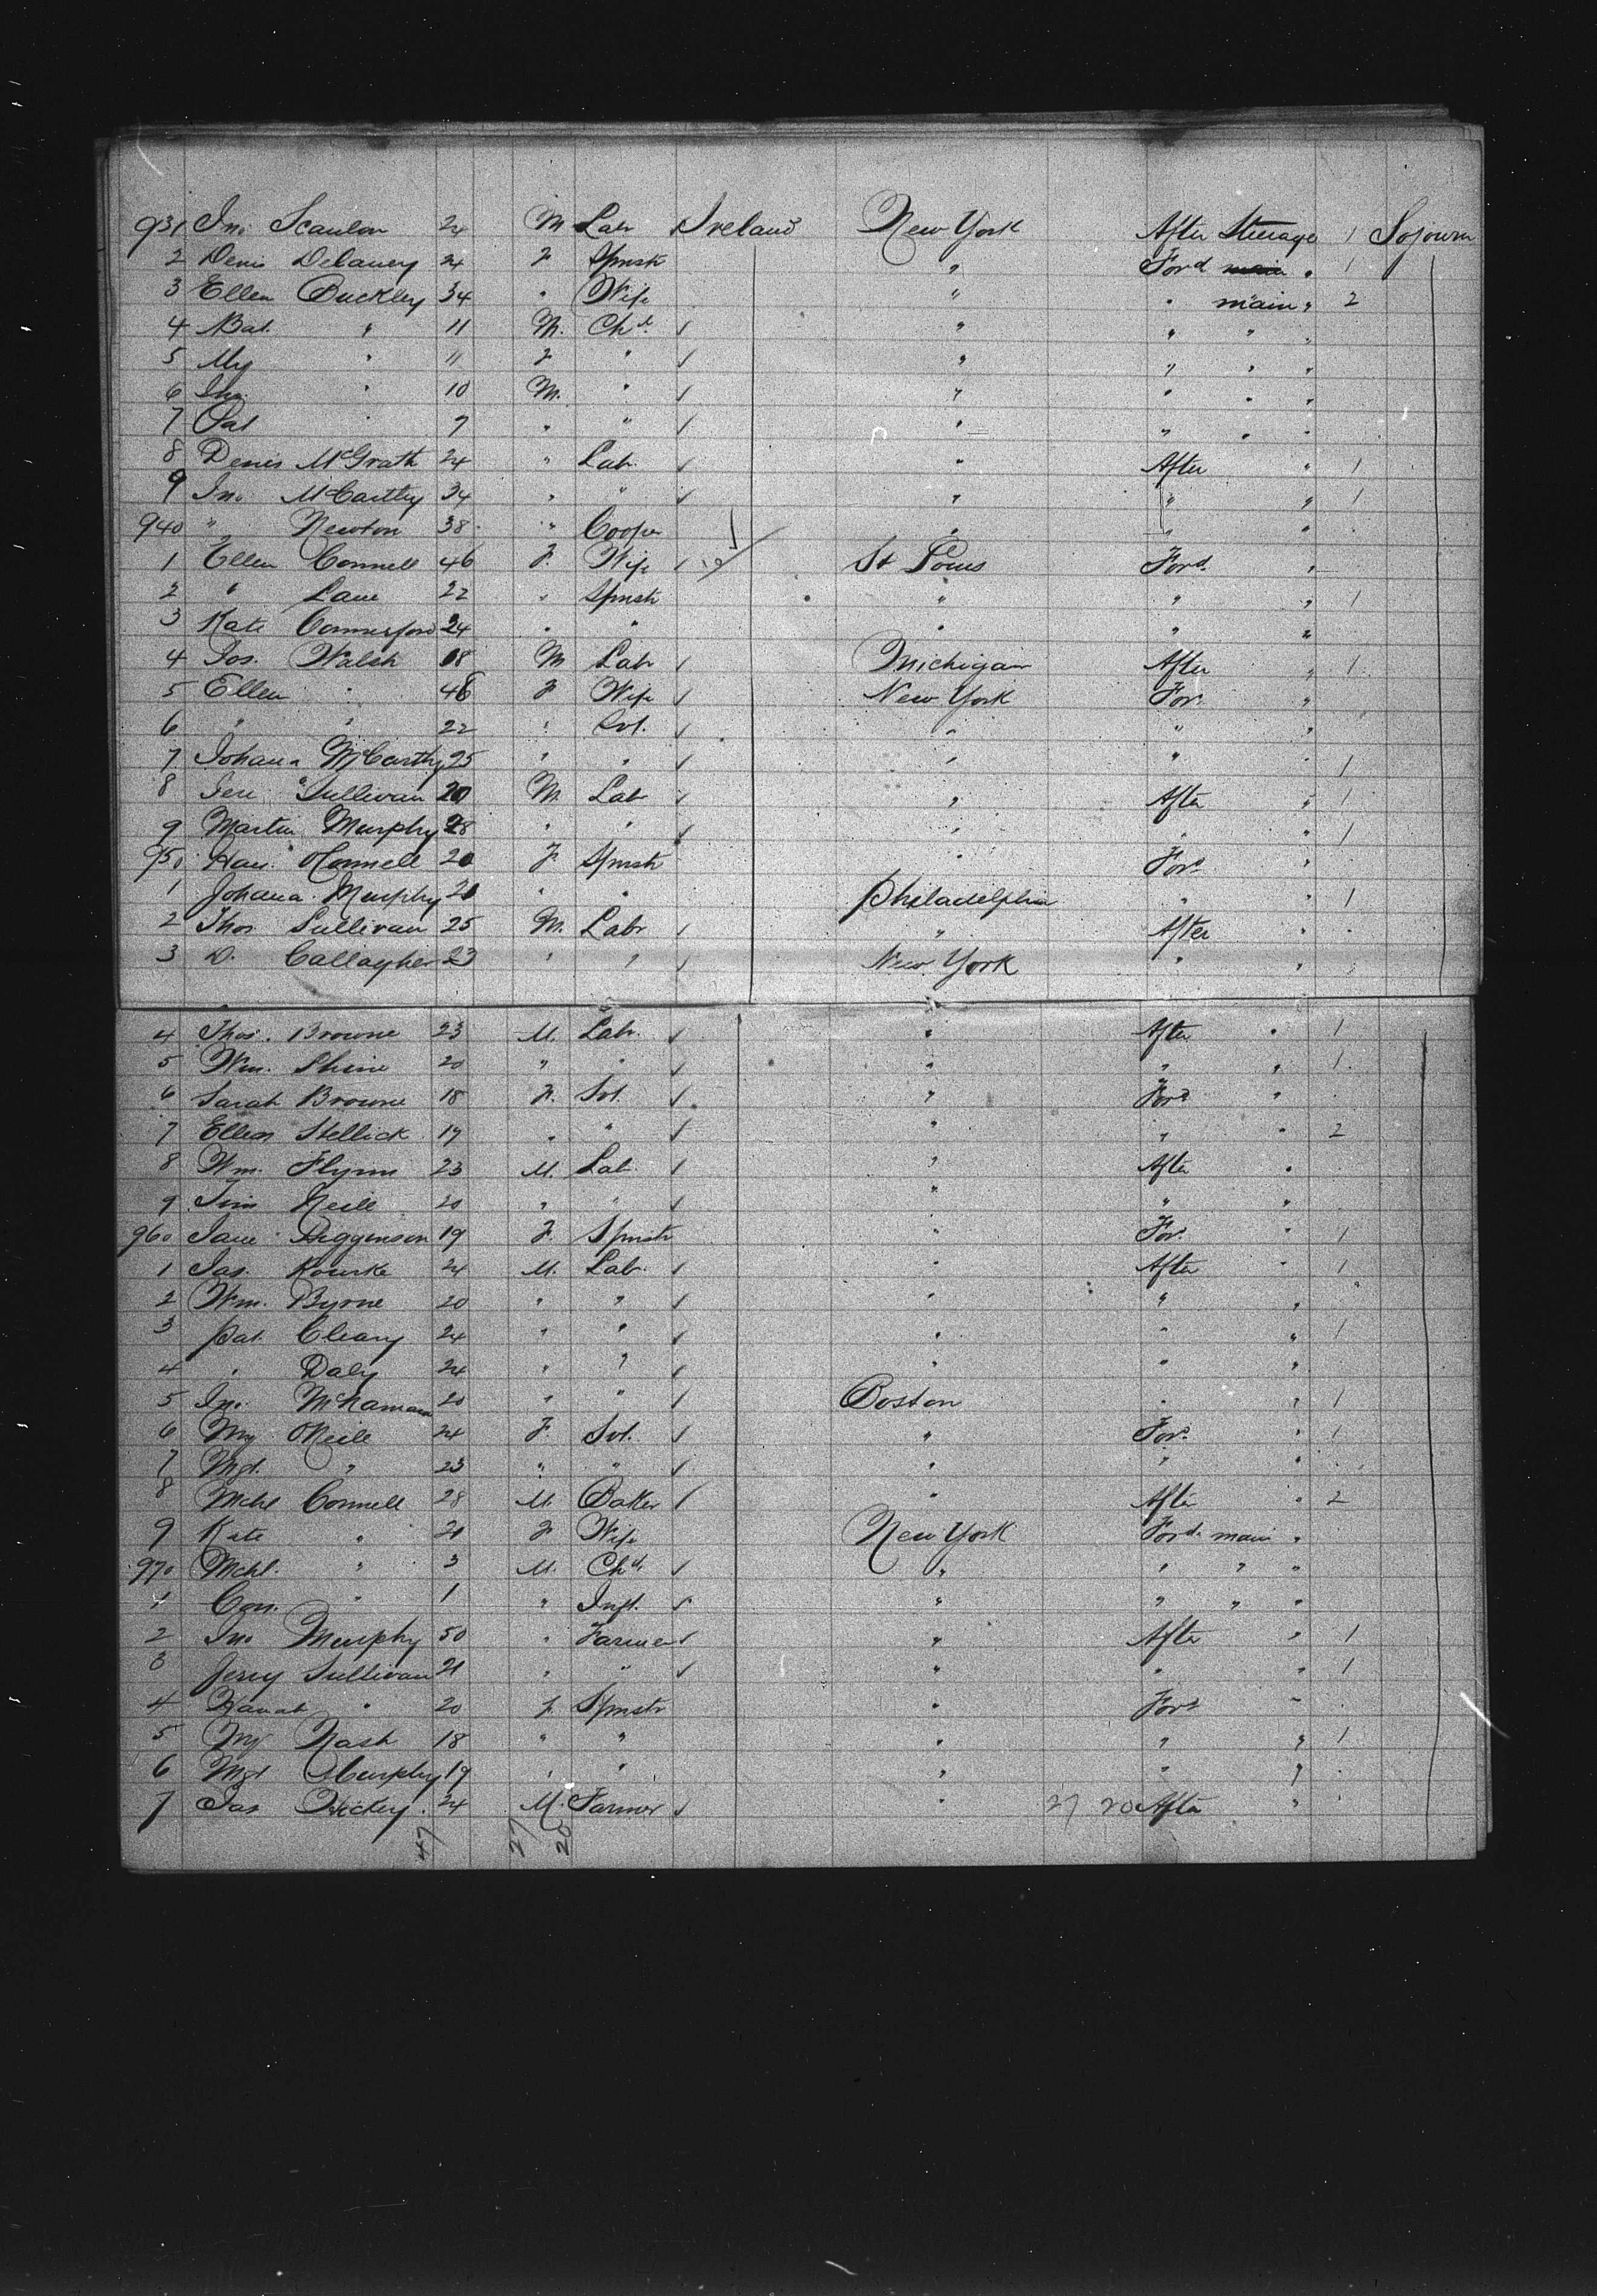 931 Jno Scanlon 24 M Labr Ireland New York After Steerage 1 Sojourn
2 Denis Delaney 24 F Spnstr " Ford main " 1
3 Ellen Buckley 34 " Wife " " main " 2
4 Bat. " 11 M. Chd. " " " "
5 My " 11 F " " " " "
6 Jno " 10 M. " " " " "
7 Pat " 7 " " " " " "
8 Denis McGrath 24 " Labr " After " 1
9 Jno McCarthy 34 " " " " " 1
940 " Newton 38 " Cooper " " "
1 Ellen Connell 46 F. Wife St Louis Ford. "
2 " Lane 22 " Spnstr " " " 1
3 Kate Commerford 24 " " " " "
4 Jos. Walsh 18 M Labr Michigan After " 1
5 Ellen " 46 F Wife New York For. "
6 " " 22 " Svt. " " "
7 Johana McCarthy 25 " " " " 1
8 Jere Sullivan 20 M. Labr " After " 1
9 Martin Murphy 28 " " " " " 1
950 Han. OConnell 20 F Spnstr " For. "
1 Johana Murphy 20 " " Philadelphia " " 1
2 Thos Sullivan 25 M. Labr " After "
3 D. Callagher 23 " " New York " "
4 Thos. Browne 23 M. Labr. " After " 1
5 Wm. Shine 20 " " " " " 1
6 Sarah Browne 18 F. Svt. " Ford "
7 Ellen Stellick 17 " " " " " 2
8 Wm. Flynn 23 M. Lab. " After "
9 Tim Neile 20 " " " " "
960 Jane Higginson 19 F Spnstr " For. " 1
1 Jas. Rourke 24 M. Lab. " After " 1
2 Wm. Byrne 20 " " " " "
3 Pat. Cleary 24 " " " " " 1
4 " Daly 24 " " " " "
5 Jno. McNamara 20 " " Boston " " 1
6 My ONeile 24 F. Svt. " For. " 1
7 Mgt. " 23 " " " " "
8 Mchl Connell 28 M. Baker " After " 2
9 Kate " 21 F Wife New York Ford. main "
970 Mchl. " 3 M. Chd. " " " "
1 Con. " 1 " Inft. " " " "
2 Jno Murphy 50 " Farmer " After " 1
3 Jerry Sullivan 21 " " " " " 1
4 Hanah " 20 F. Spnstr " Ford "
5 My Nash 18 " " " " " 1
6 Mgt Murphy 19 " " " " "
7 Jas Hickey. 24 M. Farmer " 27 20 After "
47 27 20